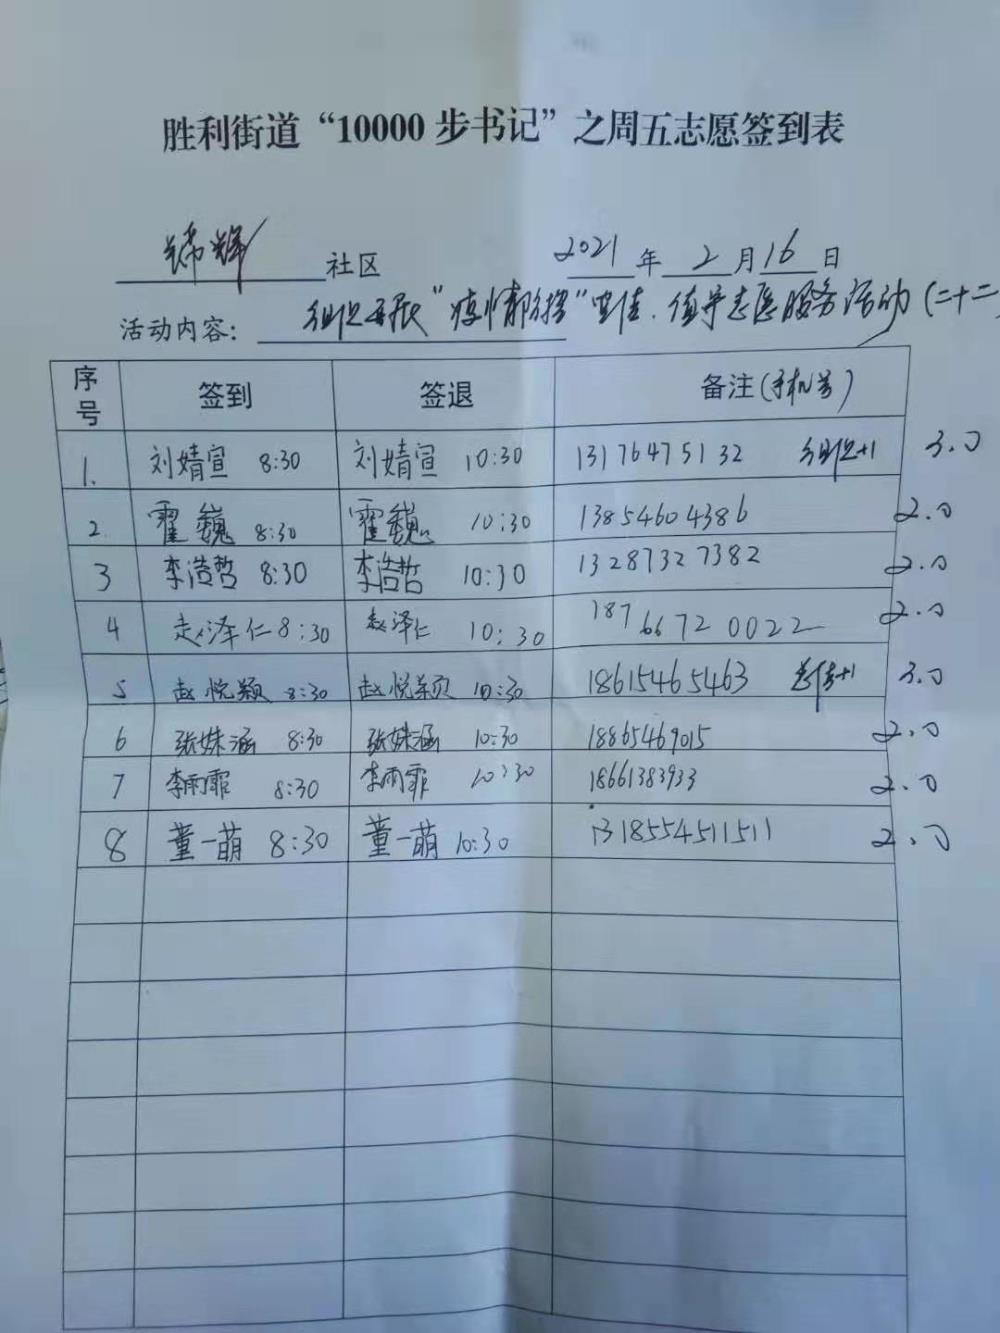 胜利街道“10000步书记”之周五志愿签到表
锦辉 社区 2021 年 2 月 16 日
活动内容： 组织开展“疫情防控”宣传、值守志愿服务活动(二十二
序号 签到 签退 备注(手机号)
1. 刘婧宣 8:30 刘婧宣 10:30 13176475132 组织+1 3.0
2. 霍巍 8:30 霍巍 10:30 13854604386 2.0
3 李浩哲 8:30 李浩哲 10:30 13287327382 2.0
4 赵泽仁 8:30 赵泽仁 10:30 18766720022 2.0
5 赵悦颖 8:30 赵悦颖 10:30 18615465463 +1 3.0
6 张姝涵 8:30 张姝涵 10:30 18865469015 2.0
7 李雨霏 8:30 李雨霏 10:30 18661383933 2.0
8 董一萌 8:30 董一萌 10:30 1318554511511 2.0